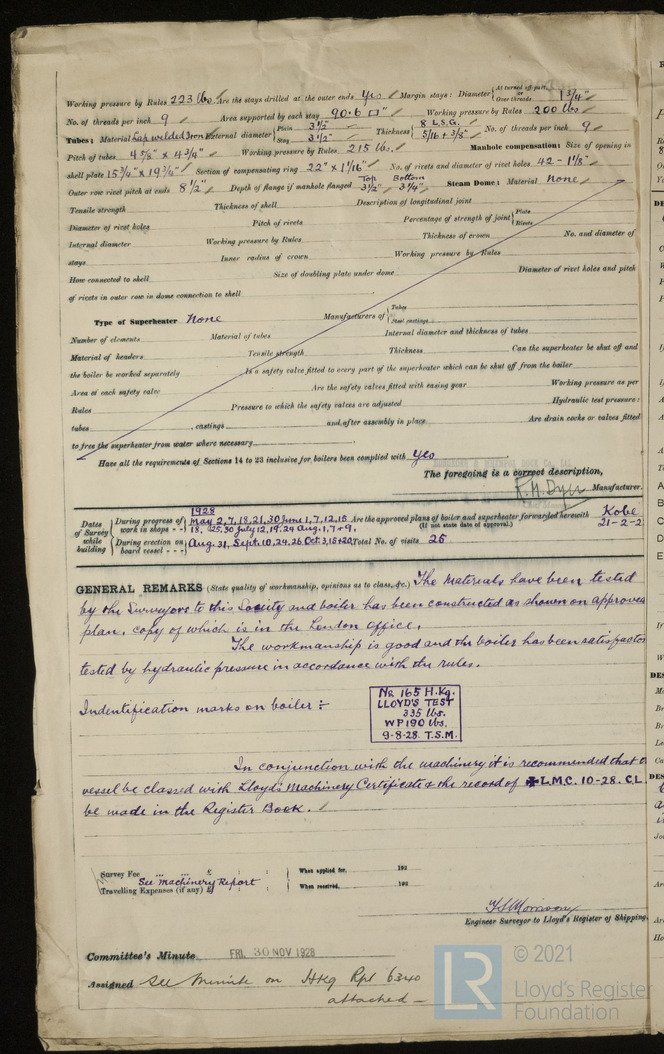 Working pressure by Rules 223 lbs. Are the stays drilled at the outer ends Yes Margin stays: Diameter { At turned off part, or Over threads 1 3/4"
No. of threads per inch 9 Area supported by each stay 90.6 □" Working pressure by Rules 200 lbs
Tubes: Material Lap welded Iron External diameter { Plain 3 1/2" Stay 3 1/2" Thickness { 8 L.S.G. 5/16 + 3/8" No. of threads per inch 9
Pitch of tubes 4 7/8" x 4 3/4" Working pressure by Rules 215 lbs. Manhole compensation: Size of opening in
shell plate 15 3/4" x 19 3/4" Section of compensating ring 22" x 1 1/16" No. of rivets and diameter of rivet holes 42 - 1 1/8"
Outer row rivet pitch at ends 8 1/2" Depth of flange if manhole flanged Top 3 1/2" Bottom 3 1/4" Steam Dome: Material None
Tensile strength Thickness of shell Description of longitudinal joint
Diameter of rivet holes Pitch of rivets Percentage of strength of joint { Plate Rivets
Internal diameter Working pressure by Rules Thickness of crown No. and diameter of
stays Inner radius of crown Working pressure by Rules
How connected to shell Size of doubling plate under dome Diameter of rivet holes and pitch
of rivets in outer row in dome connection to shell
Type of Superheater None Manufacturers of { Tubes Steel castings
Number of elements Material of tubes Internal diameter and thickness of tubes
Material of headers Tensile strength Thickness Can the superheater be shut off and
the boiler be worked separately Is a safety valve fitted to every part of the superheater which can be shut off from the boiler
Area of each safety valve Are the safety valves fitted with easing gear Working pressure as per
Rules Pressure to which the safety valves are adjusted Hydraulic test pressure:
tubes , castings and after assembly in place Are drain cocks or valves fitted
to free the superheater from water where necessary
Have all the requirements of Sections 14 to 23 inclusive for boilers been complied with Yes
The foregoing is a correct description,
R. M. Dyer Manufacturer.
Dates of Survey while building
1928
During progress of work in shops - - May 2, 7, 18, 21, 30 June 1, 7, 12, 15, 18, 25, 30 July 12, 19, 24 Aug. 1, 7 + 9. Are the approved plans of boiler and superheater forwarded herewith Kobe
(If not state date of approval.) 21-2-2
During erection on board vessel - - - Aug. 31, Sept. 10, 24, 26 Oct 3, 15 + 20, Total No. of visits 25
GENERAL REMARKS (State quality of workmanship, opinions as to class, &c.) The Materials have been tested
by the Surveyors to this Society and boiler has been constructed as shown on approved
plan, copy of which is in the London office.
The workmanship is good and the boiler has been satisfactor
tested by hydraulic pressure in accordance with the rules.
Indentification marks on boiler :-
No 165 H.Kg.
LLOYD'S TEST
335 lbs.
WP 190 lbs.
9-8-28. T.S.M.
In conjunction with the machinery it is recommended that
vessel be classed with Lloyd's Machinery Certificate & the record of ✠L.M.C. 10-28. C.L.
be made in the Register Book.
Survey Fee ... ... £ : : When applied for, 192
See Machinery Report
Travelling Expenses (if any) £ : : When received, 192
Engineer Surveyor to Lloyd's Register of Shipping.
Committee's Minute FRI. 30 NOV 1928
Assigned See Minute on HKg Rpt 6340
attached —
© 2021
LR
Lloyd's Register
Foundation